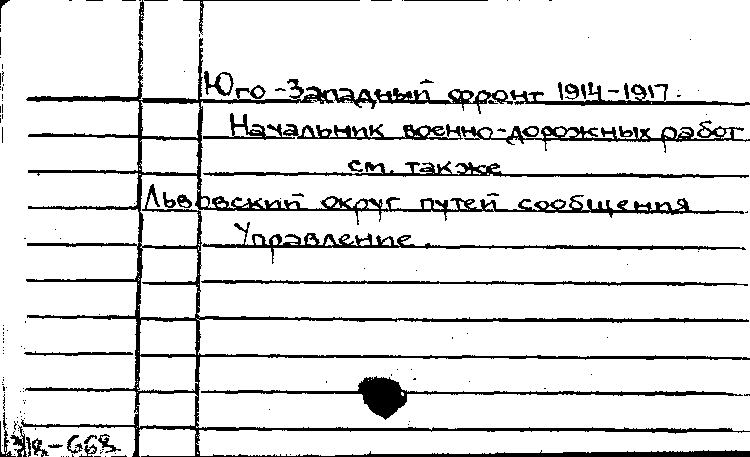 Юго-Западный фронт 1914-1917.
Начальник военно-дорожных работ
см. также
Львовский округ путей сообщения
Управление.